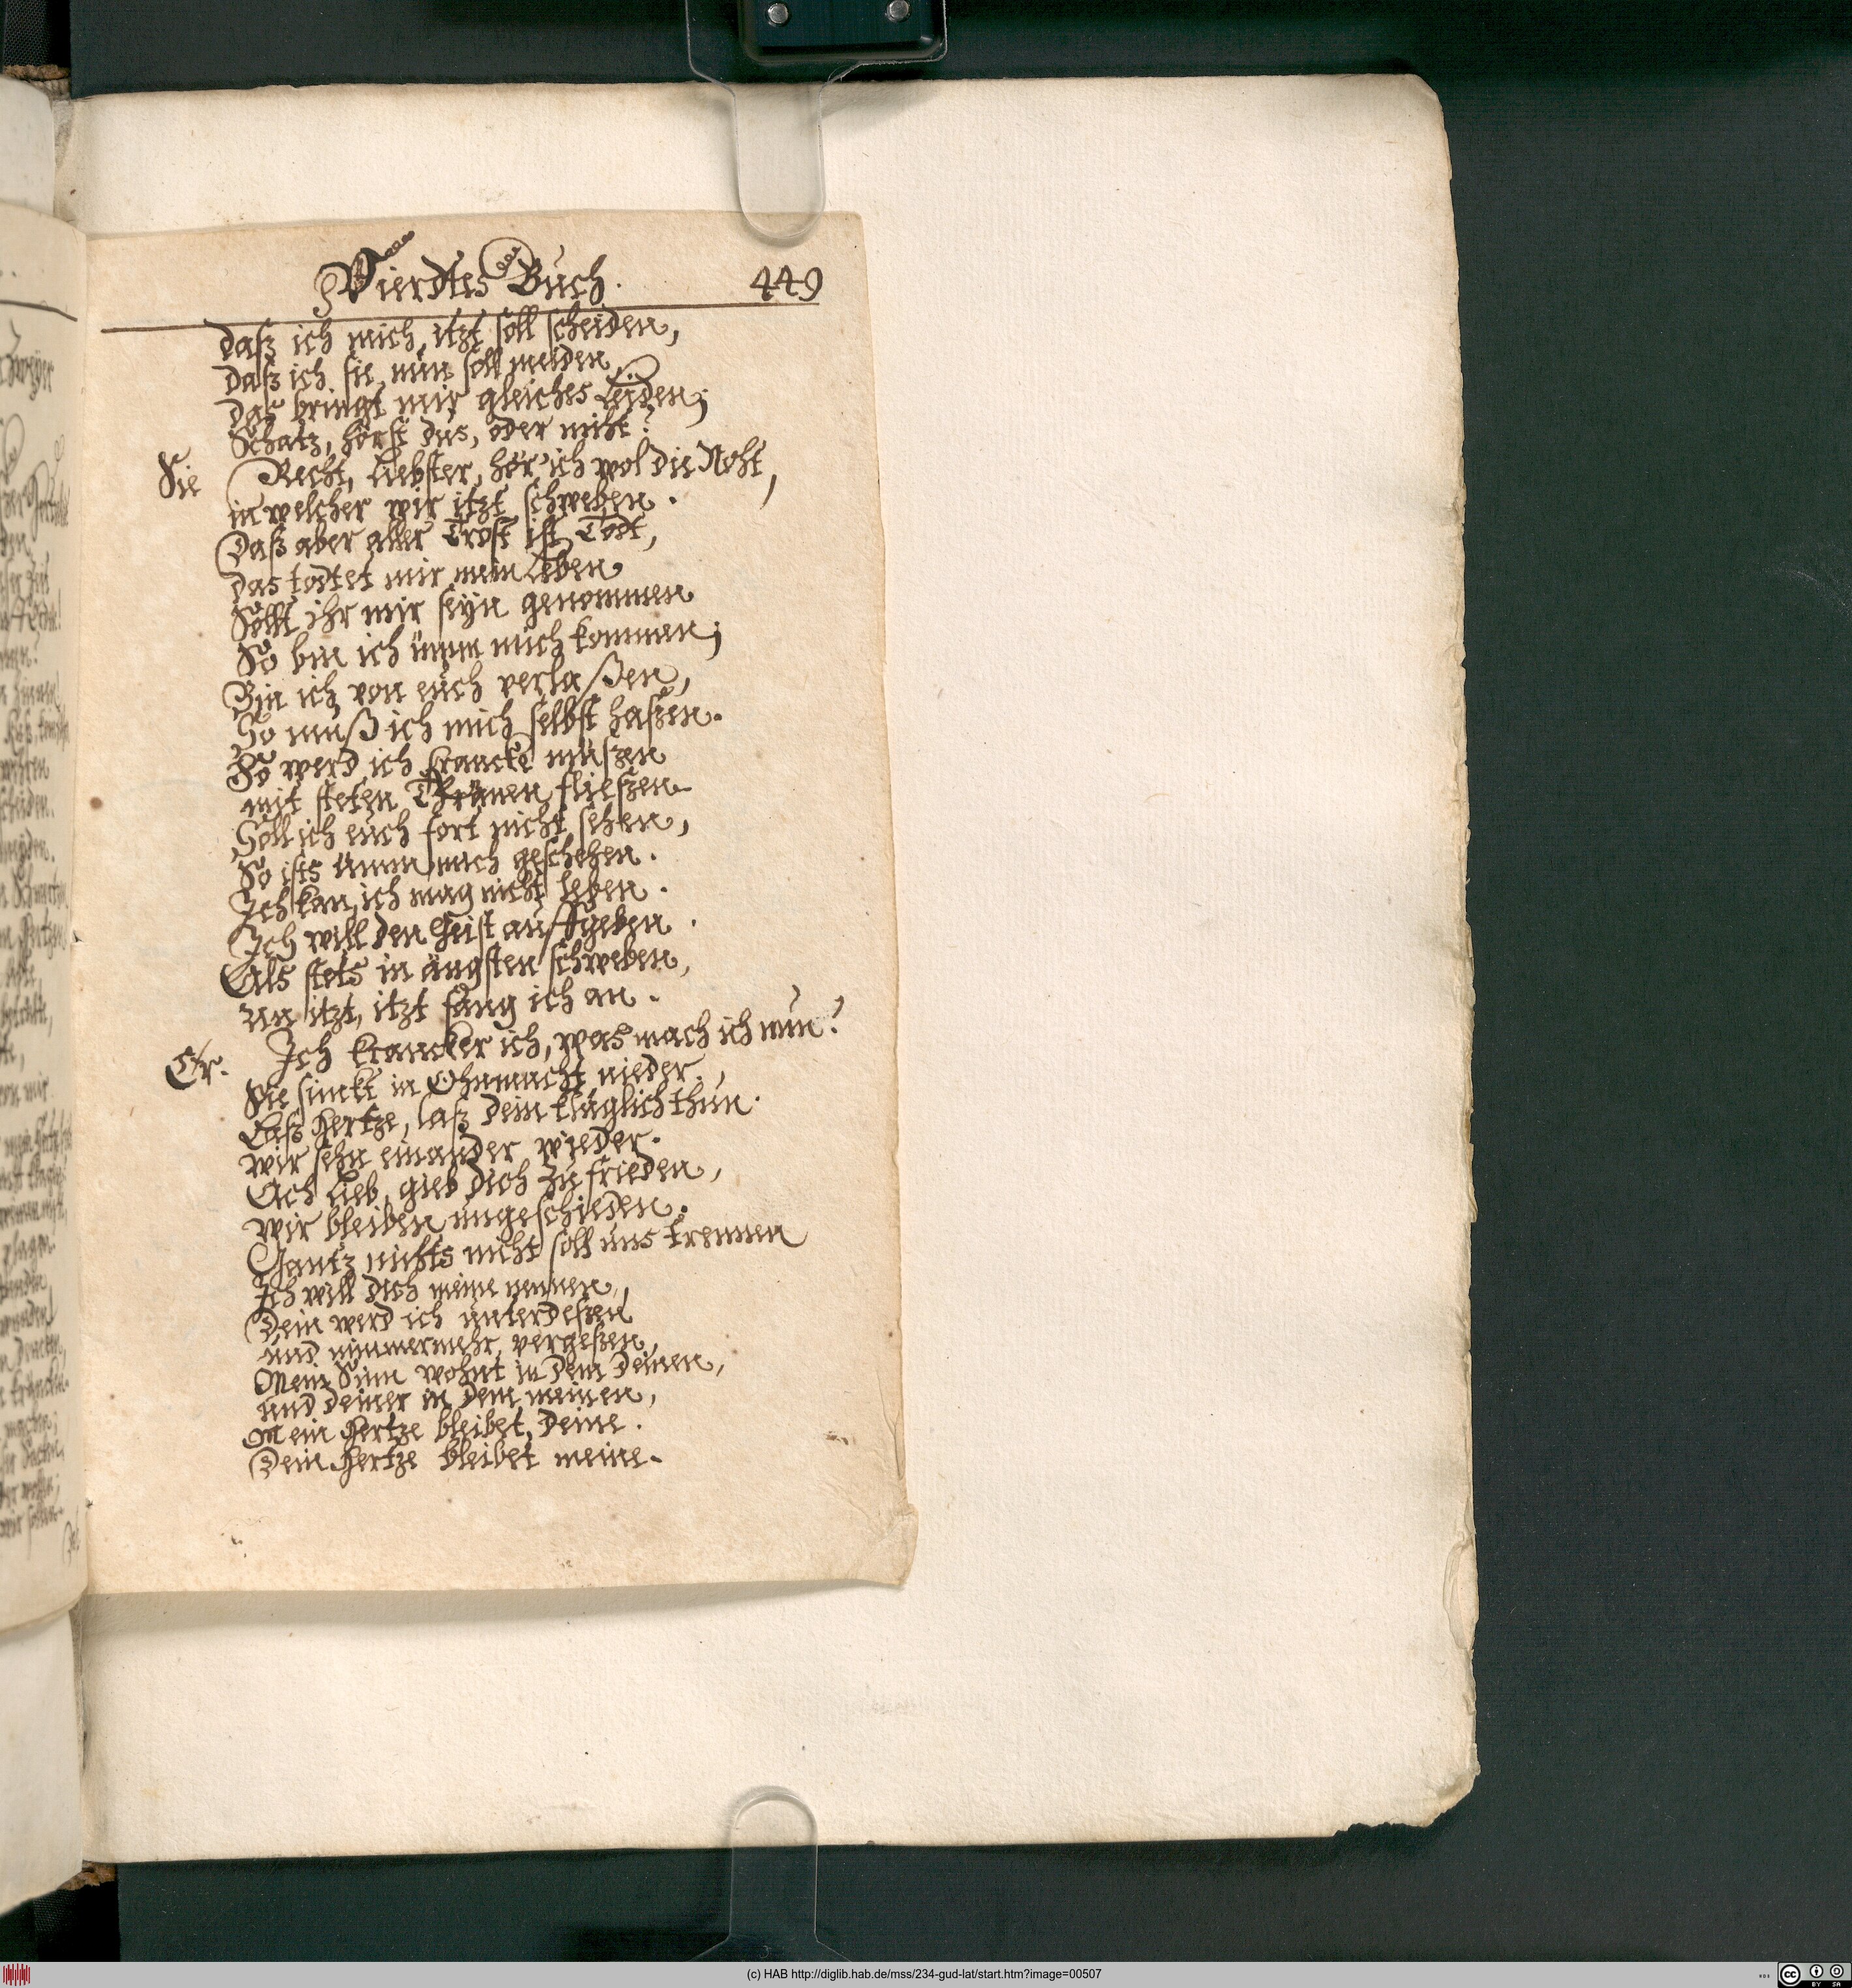 Vierdtes Buch. 449
daß ich mich itzt soll scheiden,
daß ich sie nun soll meiden,
das bringt mir gleiches Leiden;
Schatz, hörst dus, oder nicht?
Sie Recht, Liebster, hör' ich wol die Noht,
in welcher wir itzt schweben.
Daß aber aller Trost ist Todt,
das todtet mir mein Leben
Sollt ihr mir seyn genommen
So bin ich ümm mich kommen;
Bin ich von euch verlaßen,
So muß ich mich selbst haßen.
So werd ich krancke müßen
mit steten Thränen fließen
Soll ich euch fort nicht sehen,
So ists ümm mich geschehen.
Ich kan, ich mag nicht leben.
Ich will den Geist auffgeben.
Als stets in ängsten schweben,
Un itzt, itzt fang ich an.
Er. Ich krancker ich, was mach ich nun?
Sie sinckt in Ohnmacht nieder.
Laß Hertze, laß dein kläglich thun.
wir sehn einander wieder.
Ach Lieb, gieb dich zu frieden,
wir bleiben ungeschieden.
Gantz nichts nicht soll uns trennen
Ich will dich meine nennen,
Dein werd ich unterdeßen
und nimmermehr vergeßen,
Mein Sinn wohnt in dem deinen,
und deiner in dem meinen,
Mein Hertze bleibet deine.
Dein Hertze bleibet meine.
(c) HAB http://diglib.hab.de/mss/234-gud-lat/start.htm?image=00507
CC BY SA